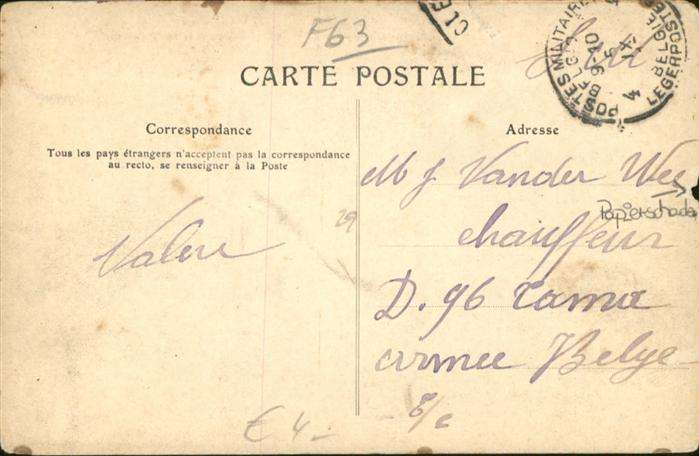 F63
CLE
POSTES MILITAIRES
BELGIË
LEGERPOSTE
4
CARTE POSTALE
Correspondance
Tous les pays étrangers n'acceptent pas la correspondance
au recto, se renseigner à la Poste
Adresse
Mr J Vander Wee
Papierschade
chauffeur
D. 96
armee Belge
Valere
29
€ 4-